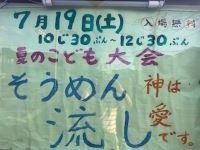 7月19日(土) 入場無料
10じ30ぷん〜12じ30ぷん
夏のこども大会
そうめん流し
神は愛です。